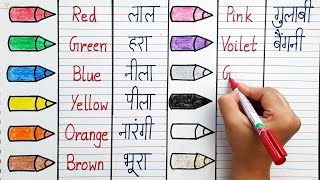 Red लाल
Green हरा
Blue नीला
Yellow पीला
Orange नारंगी
Brown भूरा
Pink गुलाबी
Voilet बैंगनी
G